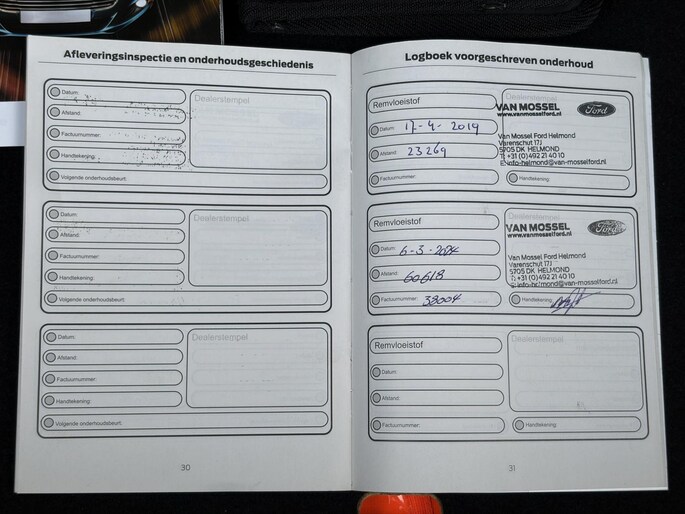 Afleveringsinspectie en onderhoudsgeschiedenis
Datum:
Afstand:
Factuurnummer:
Handtekening:
Volgende onderhoudsbeurt:
Dealerstempel
Datum:
Afstand:
Factuurnummer:
Handtekening:
Volgende onderhoudsbeurt:
Dealerstempel
Datum:
Afstand:
Factuurnummer:
Handtekening:
Volgende onderhoudsbeurt:
Dealerstempel
30
Logboek voorgeschreven onderhoud
Remvloeistof
Datum: 17-4-2019
Afstand: 23269
Factuurnummer:
Dealerstempel
VAN MOSSEL Ford
www.vanmosselford.nl
Van Mossel Ford Helmond
Varenschut 17J
5705 DK HELMOND
T: +31 (0)492 21 40 10
E: info-helmond@van-mosselford.nl
Handtekening:
Remvloeistof
Datum: 6-3-2024
Afstand: 60618
Factuurnummer: 38004
Dealerstempel
VAN MOSSEL Ford
www.vanmosselford.nl
Van Mossel Ford Helmond
Varenschut 17J
5705 DK HELMOND
T: +31 (0)492 21 40 10
Handtekening:
Remvloeistof
Datum:
Afstand:
Factuurnummer:
Dealerstempel
Handtekening:
31